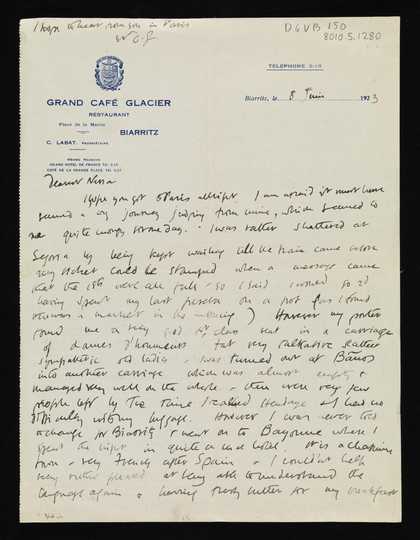 I hope to hear from you in Paris
DGVB 150
8010.5.1280
TELEPHONE 3-19
GRAND CAFÉ GLACIER
RESTAURANT
Place de la Mairie
BIARRITZ
C. LABAT, PROPRIÉTAIRE
MÊME MAISON
GRAND HOTEL DE FRANCE TEL. 0.57
CAFÉ DE LA GRANDE PLAGE TEL.
Biarritz, le 8 Juin 1923
Dearest Nessa
I hope you got to Paris allright I am afraid it must have
seemed a long journey judging from mine, which seemed to
me quite enough for one day. I was rather shattered at
Segovia by being kept waiting till the train came before
my ticket could be stamped when a message came
that the 1sts were all full - so I said I would so I'd
having spent my last peseta on a pot (as I found
there was a market in the morning) However my porter
found me a very good 1st class seat in a carriage
of dames d'honneurs fat very talkative rather
sympathetic old ladies - I was turned out at
into another carriage which was almost empty &
managed very well on the whole - there were very few
people left by the time I reached Hendaye & I had no
difficulty with my luggage. However I was never told
to change for Biarritz & went on to Bayonne where I
spent the night in quite a nice hotel. It is a charming
town - very French after Spain - I couldn't help
very pleased at being able to understand the
language again & having fresh butter for my breakfast